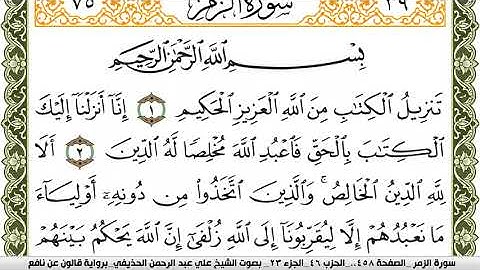 ٧٥ سورة الزمر ٣٩
بِسْمِ اللَّهِ الرَّحْمَٰنِ الرَّحِيمِ
تَنزِيلُ الْكِتَابِ مِنَ اللَّهِ الْعَزِيزِ الْحَكِيمِ ١ إِنَّا أَنزَلْنَا إِلَيْكَ
الْكِتَابَ بِالْحَقِّ فَاعْبُدِ اللَّهَ مُخْلِصًا لَهُ الدِّينَ ٢ أَلَا
لِلَّهِ الدِّينُ الْخَالِصُ وَالَّذِينَ اتَّخَذُوا مِن دُونِهِ أَوْلِيَاءَ
مَا نَعْبُدُهُمْ إِلَّا لِيُقَرِّبُونَا إِلَى اللَّهِ زُلْفَىٰ إِنَّ اللَّهَ يَحْكُمُ بَيْنَهُمْ
سورة الزمر_ الصفحة ٤٥٨... الحزب ٤٦_ الجزء ٢٣_ بصوت الشيخ علي عبد الرحمن الحذيفي_ برواية قالون عن نافع